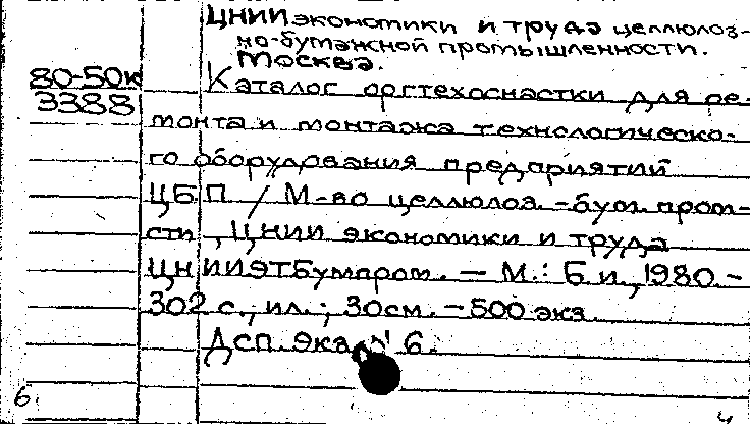 ЦНИИ экономики и труда целлюлоз-
но-бумажной промышленности.
Москва.
80-50к
3388
Каталог оргтехоснастки для ре-
монта и монтажа технологическо-
го оборудования предприятий
ЦБП / М-во целлюлоз.-бум. пром-
сти, ЦНИИ экономики и труда
ЦНИИЭТБумпром. — М.: Б.и., 1980. -
302 с., ил.; 30см. - 500 экз.
Дсп. Экз. № 6.
6.
4